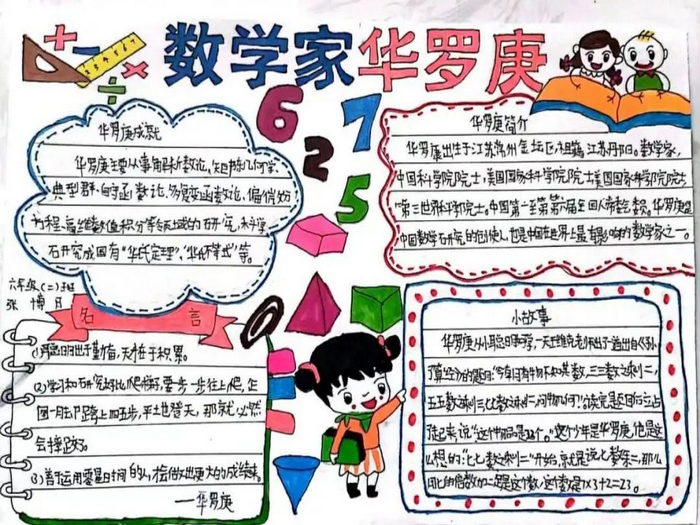 数学家华罗庚
6
7
2
5
华罗庚成就
华罗庚主要从事解析数论、矩阵几何学、
典型群、自守函数论、多复变函数论、偏微分
方程、高维数值积分等领域的研究,
研究成果有“华氏定理”、“华不等式”等。
华罗庚简介
华罗庚出生于江苏常州金坛区,祖籍江苏丹阳。数学家,
中国科学院院士,美国国家科学院院士,
“第三世界科学院院士。中国第一至第六届全国人常
中国数学研究的创始人,也是中国在世界上最有影响的数学家之一。
六年级(二)班
张博
名言
(1)聪明出于勤奋,天才在于积累。
(2)学习和研究好比爬梯子,要一步一步往上爬,企
图一脚跨上四五步,平土登天,那就必然
会摔跤了。
(3)善于运用零星时间的人,才会做出更大的成绩来。
—华罗庚
小故事
华罗庚从小聪明好学,一天王维克老师出了道出自《孙
子算经》的题目:“今有物不知其数,三三数之剩二,
五五数之剩三,七七数之剩二,问物几何?”
了起来,说“这个物品是23个。”这个少年是华罗庚,他是这
么想的:“七七数之剩二”开始,就是说七数余二,那么
7x3+2=23。